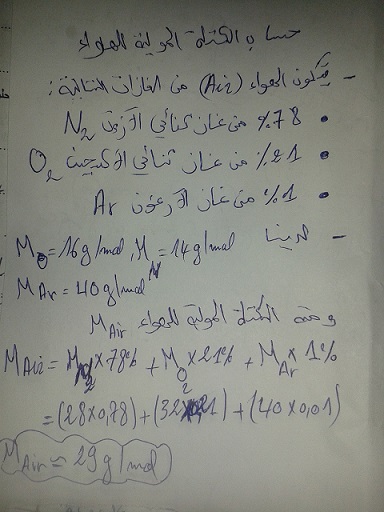 حساب الكتلة المولية للهواء
- يتكون الهواء (Air) من الغازات التالية:
• 78% من غاز ثنائي الآزوت N₂
• 21% من غاز ثنائي الأكسجين O₂
• 1% من غاز الآرغون Ar
- لدينا M_O = 16 g/mol , M_N = 14 g/mol
M_Ar = 40 g/mol
ومنه الكتلة المولية للهواء M_Air
M_Air = M_N₂ × 78% + M_O₂ × 21% + M_Ar × 1%
= (28×0,78) + (32×0,21) + (40×0,01)
M_Air ≈ 29 g/mol